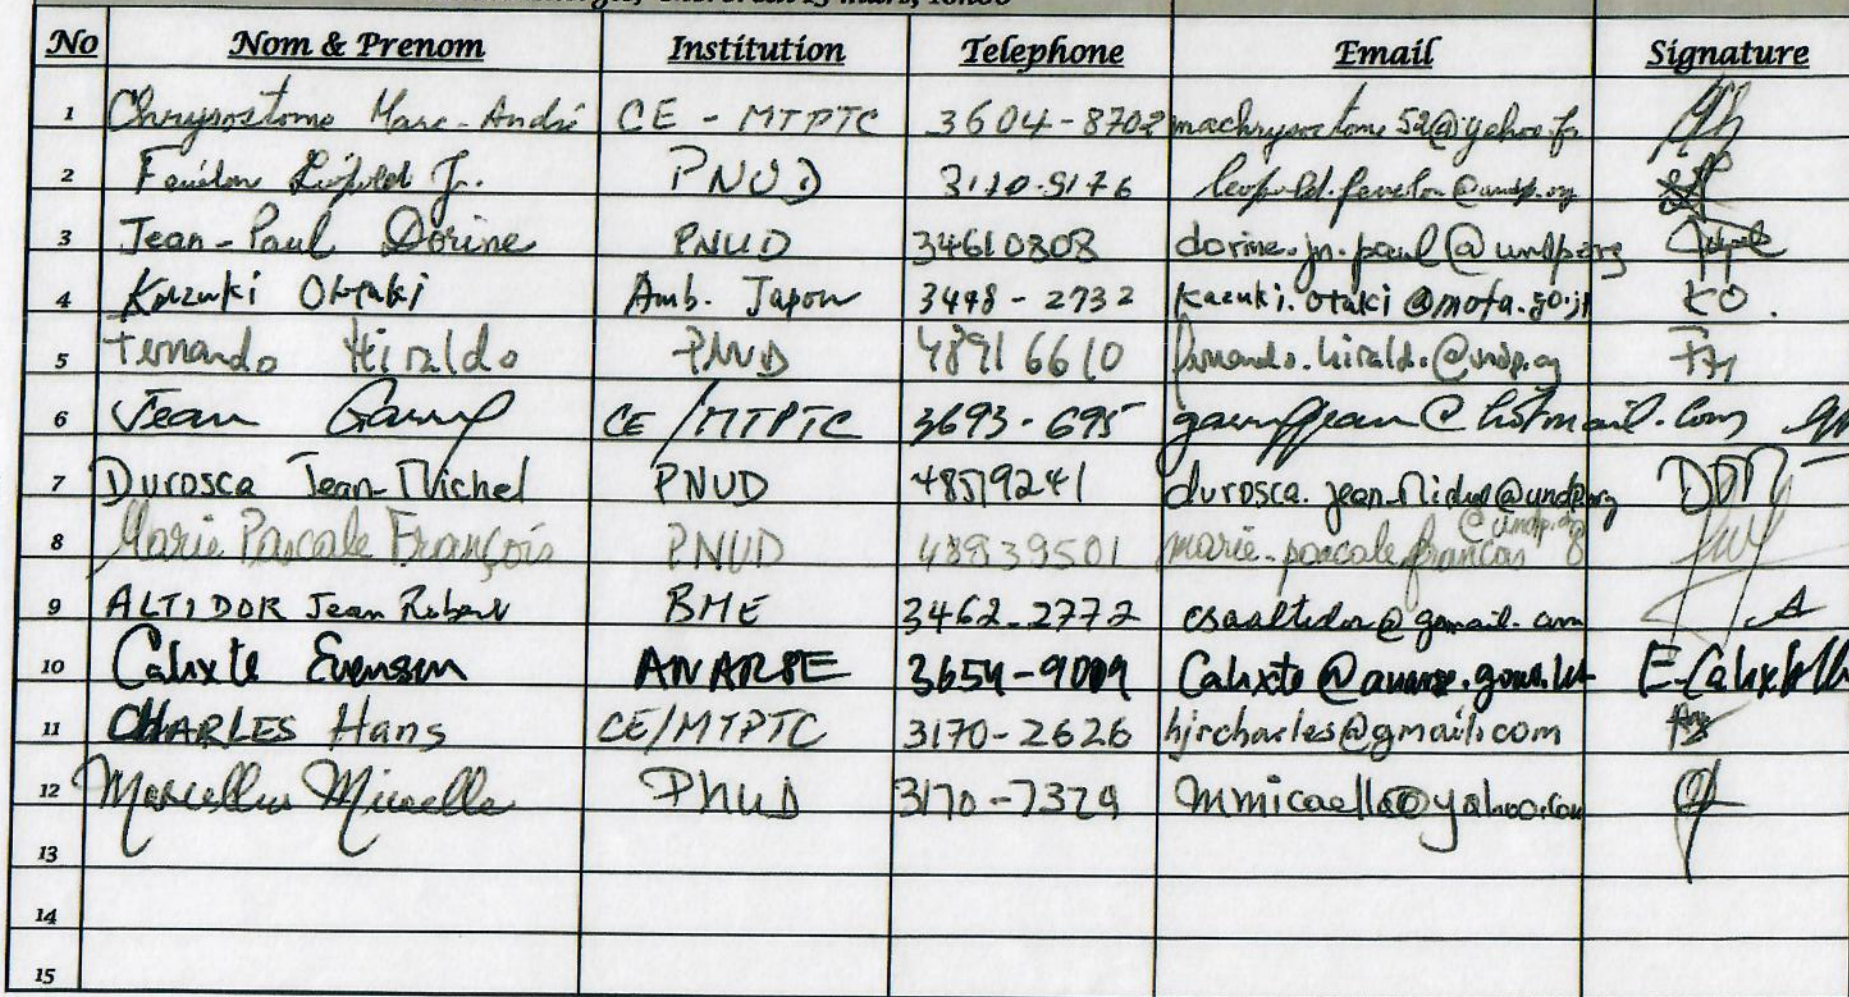 mars, 10h00
No Nom & Prenom Institution Telephone Email Signature
1 Chrysostome Marc-André CE - MTPTC 3604-8702 machrysostome52@yahoo.fr
2 Jr. PNUD 3170-5176 @undp.org
3 Jean-Paul Dorine PNUD 34610808 dorine.jn.paul@undp.org
4 Kazuki Ohtaki Amb. Japon 3448-2732 kazuki.otaki@mofa.go.jp KO.
5 Fernando Hiraldo PNUD 48916610 fernando.hiraldo@undp.org FH
6 Jean CE/MTPTC 3693-695 @hotmail.com
7 Durosca Jean-Michel PNUD 48579241 durosca.jean-Michel@undp.org DJM
8 Marie Pascale François PNUD 48939501 marie-pascale.francois @undp.org
9 ALTIDOR Jean Robert BME 3462-2772 csaaltidor@gmail.com
10 Calixte Evenson ANARSE 3654-9009 Calixte@anarse.gouv.ht E-Calixte
11 CHARLES Hans CE/MTPTC 3170-2626 hjrcharles@gmail.com
12 Marcellus Micaelle PNUD 3170-7329 mmicaelle@yahoo.com
13
14
15